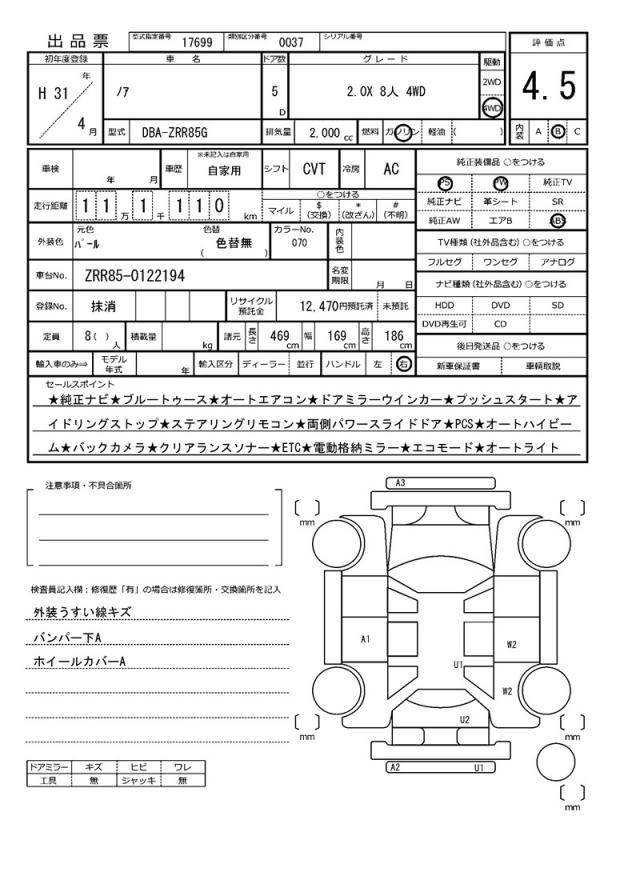 出品票 型式指定番号 17699 類別区分番号 0037 シリアル番号
評価点
4.5
内装 A B C
初年度登録 車名 ドア数 グレード 駆動
H 31 年 4 月
ノア
5 D
2.0X 8人 4WD
2WD
4WD
型式 DBA-ZRR85G 排気量 2,000 cc 燃料 ガソリン 軽油 ( )
車検 年 月 車歴 ※未記入は自家用 自家用 シフト CVT 冷房 AC
走行距離 1 1 万 1 千 1 1 0 km
○をつける
マイル $(交換) *(改ざん) #(不明)
外装色 元色 パール 色替 色替無 ( ) カラーNo. 070 内装色
車台No. ZRR85-0122194 名変期限 月 日
登録No. 抹消 リサイクル預託金 12,470円預託済 未預託
定員 8( )人 積載量 kg 諸元 長さ 469 cm 幅 169 cm 高さ 186 cm
輸入車のみ⇒ モデル年式 年 輸入区分 ディーラー 並行 ハンドル 左 右
純正装備品 ○をつける
PS PW 純正TV
純正ナビ 革シート SR
純正AW エアB ABS
TV種類 (社外品含む) ○をつける
フルセグ ワンセグ アナログ
ナビ種類 (社外品含む) ○をつける
HDD DVD SD
DVD再生可 CD
後日発送品 ○をつける
新車保証書 車輌取説
セールスポイント
★純正ナビ★ブルートゥース★オートエアコン★ドアミラーウインカー★プッシュスタート★ア
イドリングストップ★ステアリングリモコン★両側パワースライドドア★PCS★オートハイビー
ム★バックカメラ★クリアランスソナー★ETC★電動格納ミラー★エコモード★オートライト
注意事項・不具合箇所
検査員記入欄：修復歴「有」の場合は修復箇所・交換箇所を記入
外装うすい線キズ
バンパー下A
ホイールカバーA
ドアミラー キズ ヒビ ワレ
工具 無 ジャッキ 無
A3
mm
mm
A1
W2
U1
W2
U2
mm
mm
A2 U1
mm